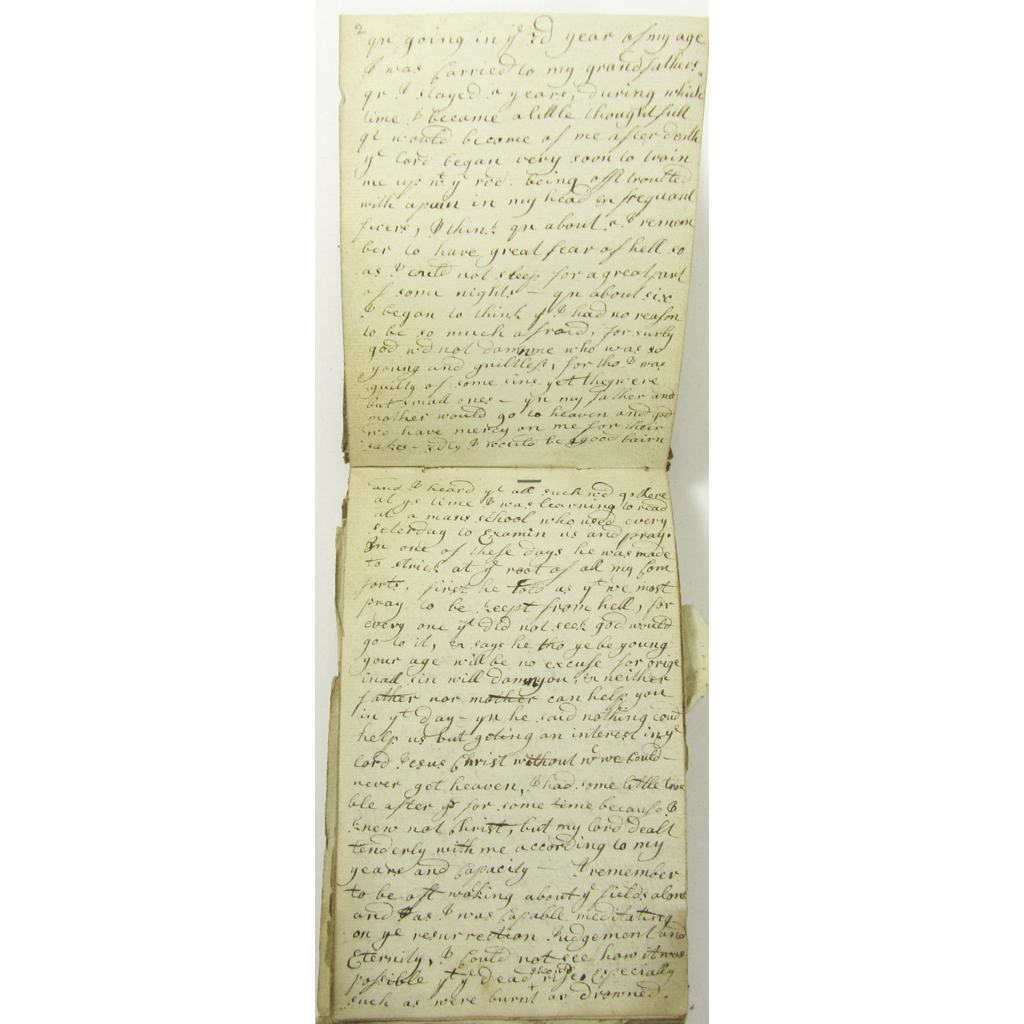 2
qn going in ye 3d year of my age
I was carried to my grandfathers
qr I stayed 2 years, during which
time I became a little thoughtfull
qt would become of me after death
ye lord began very soon to train
me up wt ye rod. being oft troubled
with a pain in my head & frequant
fivers, I think qn about I remem
ber to have great fear of hell so
as I could not sleep for a great part
of some nights — qn about six
I began to think yt I had no reason
to be so much afraid, for surly
god wd not damn me who was so
young and guiltless, for tho I was
guilty of some sins yet they were
but small ones — yn my father and
mother would go to heaven and god
wd have mercy on me for their
sakes — 3dly I would be a good bairn
and I heard yt all such wd go there
at ys time I was learning to read
at a mans school who used every
seterday to examin us and pray.
In one of these days he was made
to strick at ye root of all my com
forts, first he told us yt we most
pray to be keept from hell, for
every one yt did not seek god would
go to it, & says he tho ye be young
your age will be no excuse for orige
inall sin will damn you, & neither
father nor mother can help you
in yt day — yn he said nothing coud
help us but geting an interest in ye
lord Jesus Christ without wc we could
never get heaven, I had some little trou
ble after ys for some time because I
knew not Christ, but my lord dealt
tenderly with me according to my
years and capacity — I remember
to be oft waking about ye fields alone
and as I was capable meditating
on ye resurrection Judgement and
Eternity, I could not see how it was
possible yt ye dead should rise, especially
such as were burnt or drowned.